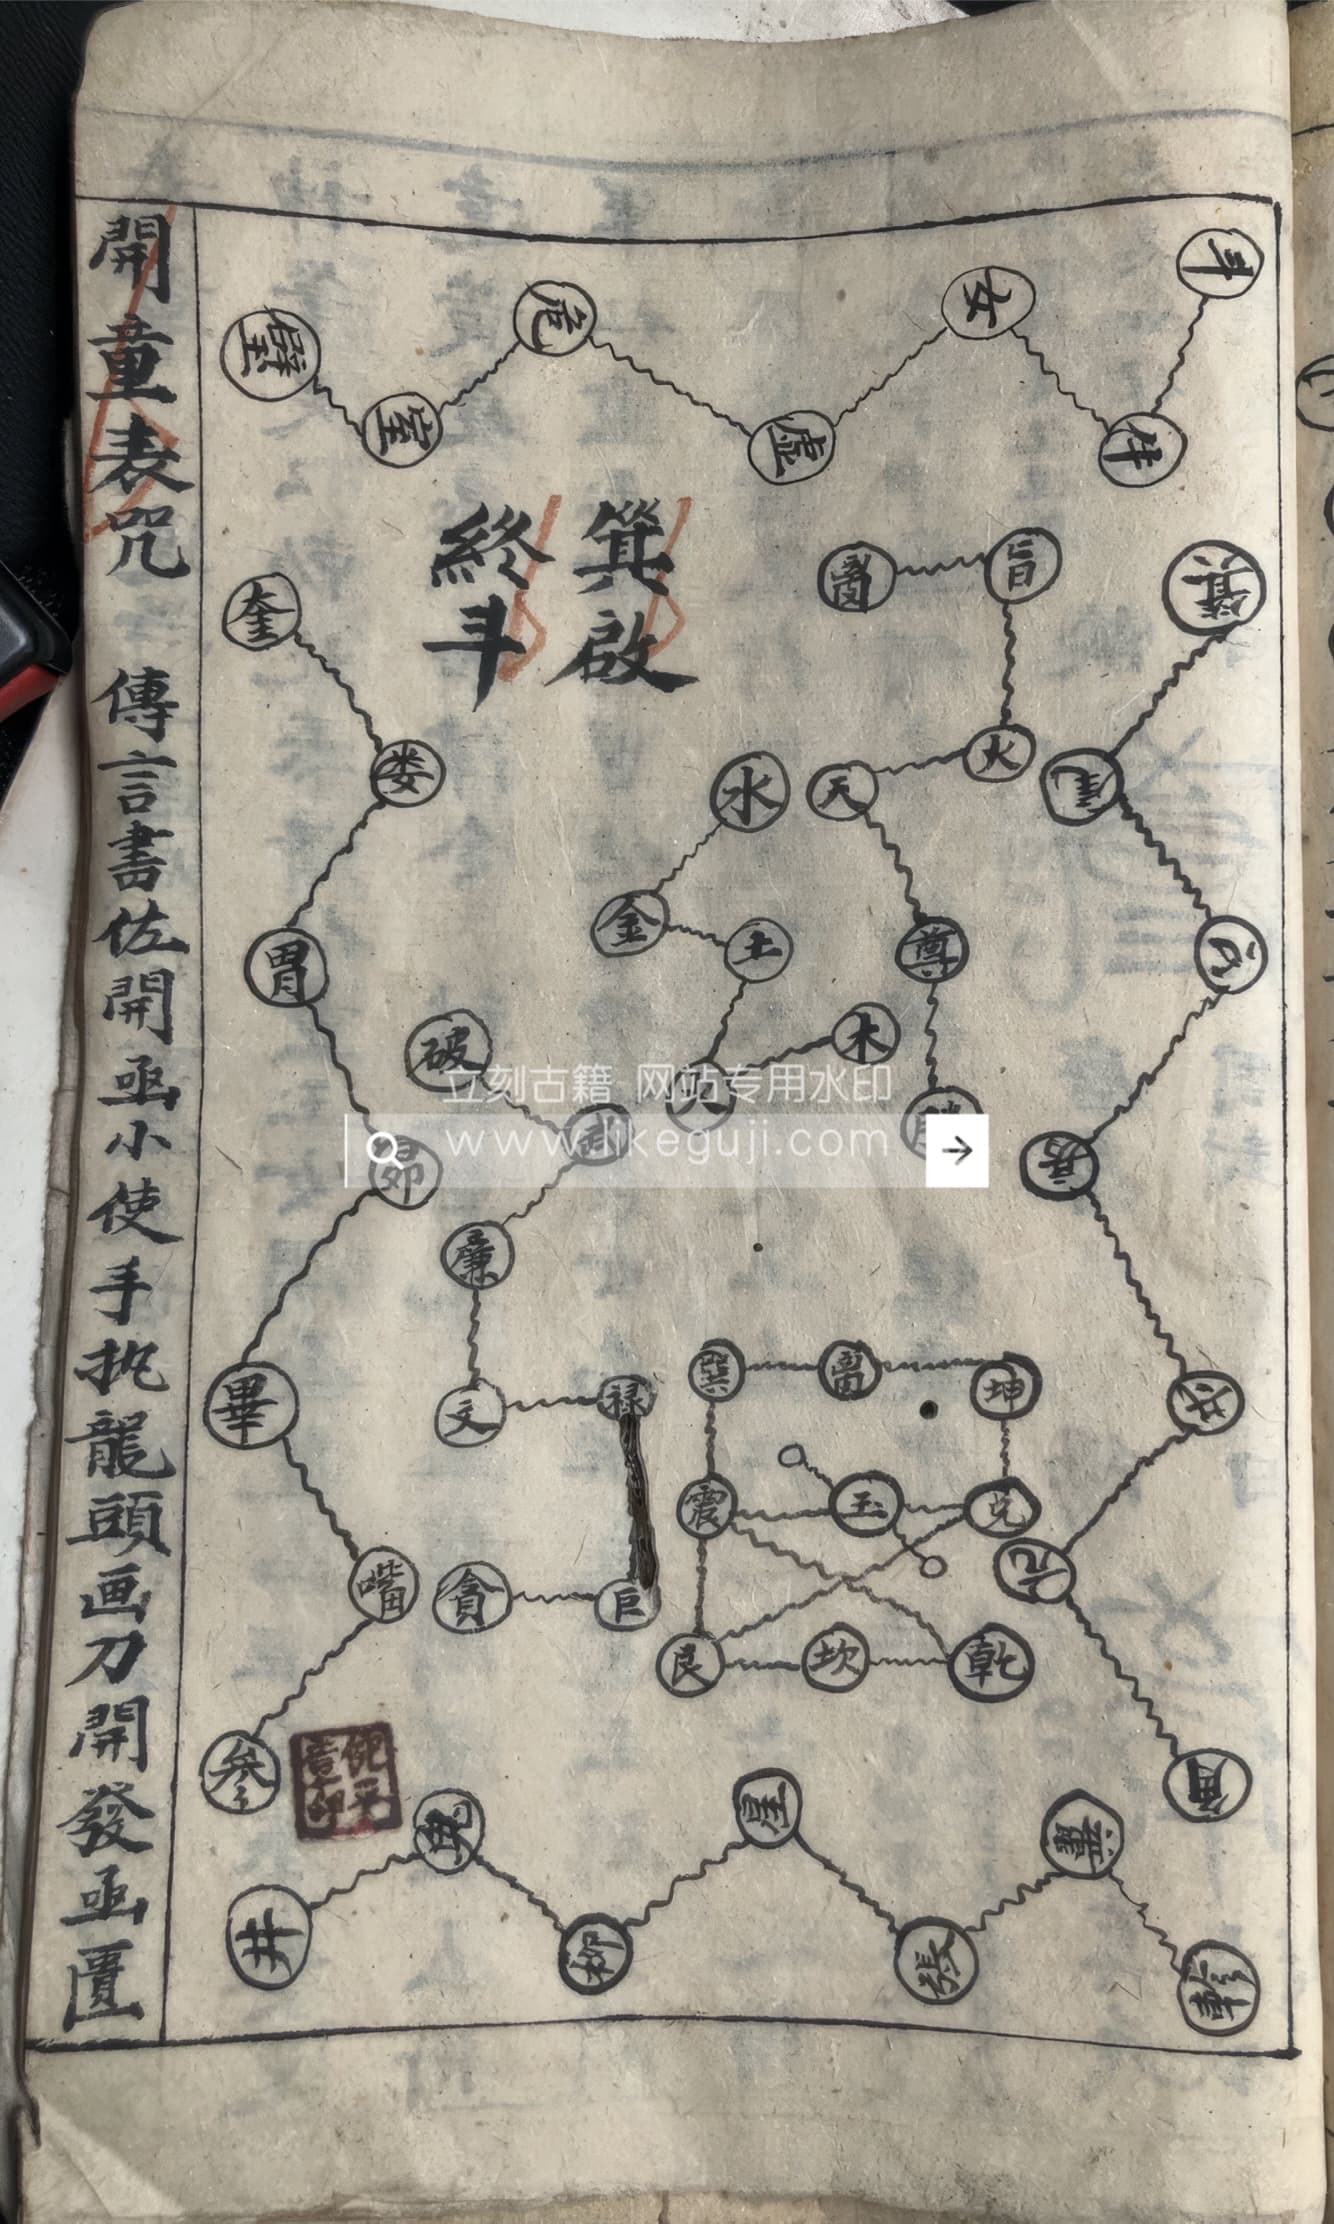 斗
牛
女
虛
危
室
壁
箕啟
終斗
奎
婁
胃
昴
畢
嘴
参
井
鬼
柳
星
張
翼
軫
箕
尾
心
房
氐
亢
角
水
金
土
火
木
天
尊
火
破
武
廉
文
禄
巨
貪
巽
離
坤
震
玉
兑
艮
坎
乾
開童表咒 傳言書佐開函小使手执龍頭画刀開發函匱
立刻古籍 网站专用水印
www.likeguji.com